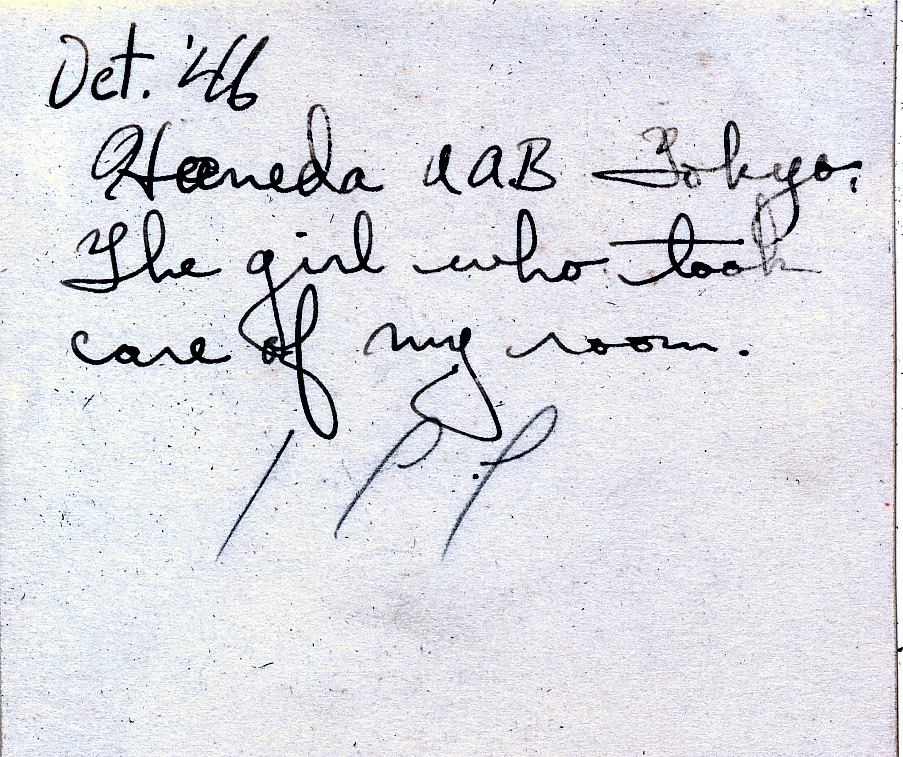 Oct. '46
Haneda AAB Tokyo.
The girl who took
care of my room.
1 P.P